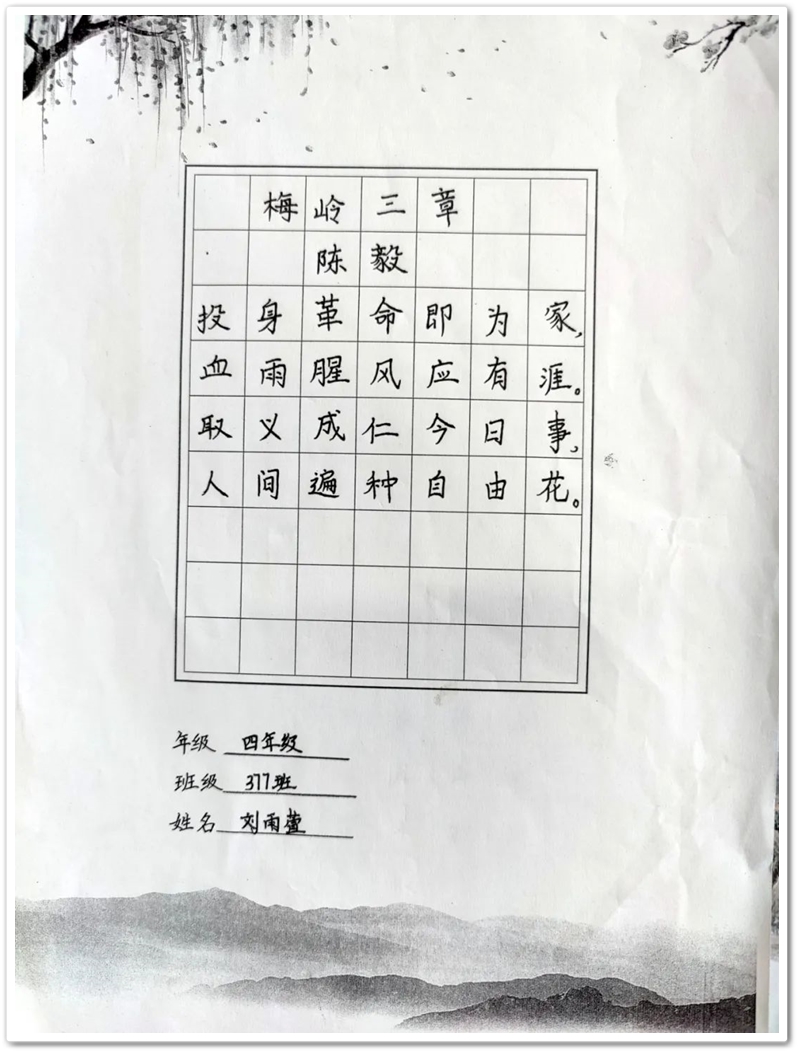 梅岭三章
陈毅
投身革命即为家,
血雨腥风应有涯。
取义成仁今日事,
人间遍种自由花。
年级 四年级
班级 377班
姓名 刘雨萱